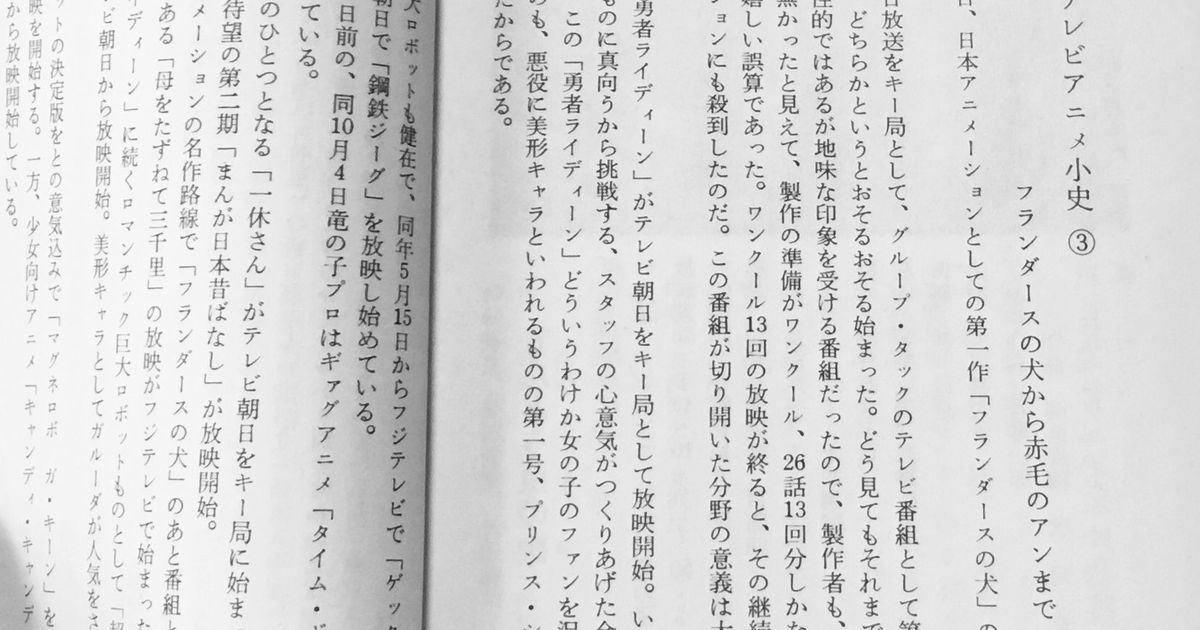 テレビアニメ小史 ③
フランダースの犬から赤毛のアンまで
日、日本アニメーションとしての第一作「フランダースの犬」の
日放送をキー局として、グループ・タックのテレビ番組として第
どちらかというとおそるおそる始まった。どう見てもそれまで
性的ではあるが地味な印象を受ける番組だったので、製作者も、
無かったと見えて、製作の準備がワンクール、26話13回分しかな
嬉しい誤算であった。ワンクール13回の放映が終ると、その継続
ョンにも殺到したのだ。この番組が切り開いた分野の意義は大
勇者ライディーン」がテレビ朝日をキー局として放映開始。い
ものに真向うから挑戦する、スタッフの心意気がつくりあげた
この「勇者ライディーン」どういうわけか女の子のファンを
のも、悪役に美形キャラといわれるものの第一号、プリンス・シ
たからである。
大ロボットも健在で、同年5月15日からフジテレビで「ゲッ
朝日で「鋼鉄ジーグ」を放映し始めている。
日前の、同10月4日竜の子プロはギャグアニメ「タイム・ド
ている。
のひとつとなる「一休さん」がテレビ朝日をキー局に始ま
待望の第二期「まんが日本昔ばなし」が放映開始。
メーションの名作路線で「フランダースの犬」のあと番組と
ある「母をたずねて三千里」の放映がフジテレビで始まった
ディーン」に続くロマンチック巨大ロボットものとして「超
ビ朝日から放映開始。美形キャラとしてガルーダが人気をさ
ットの決定版をとの意気込みで「マグネロボ ガ・キーン」を
映を開始する。一方、少女向けアニメ「キャンディ・キャンデ
から放映開始している。